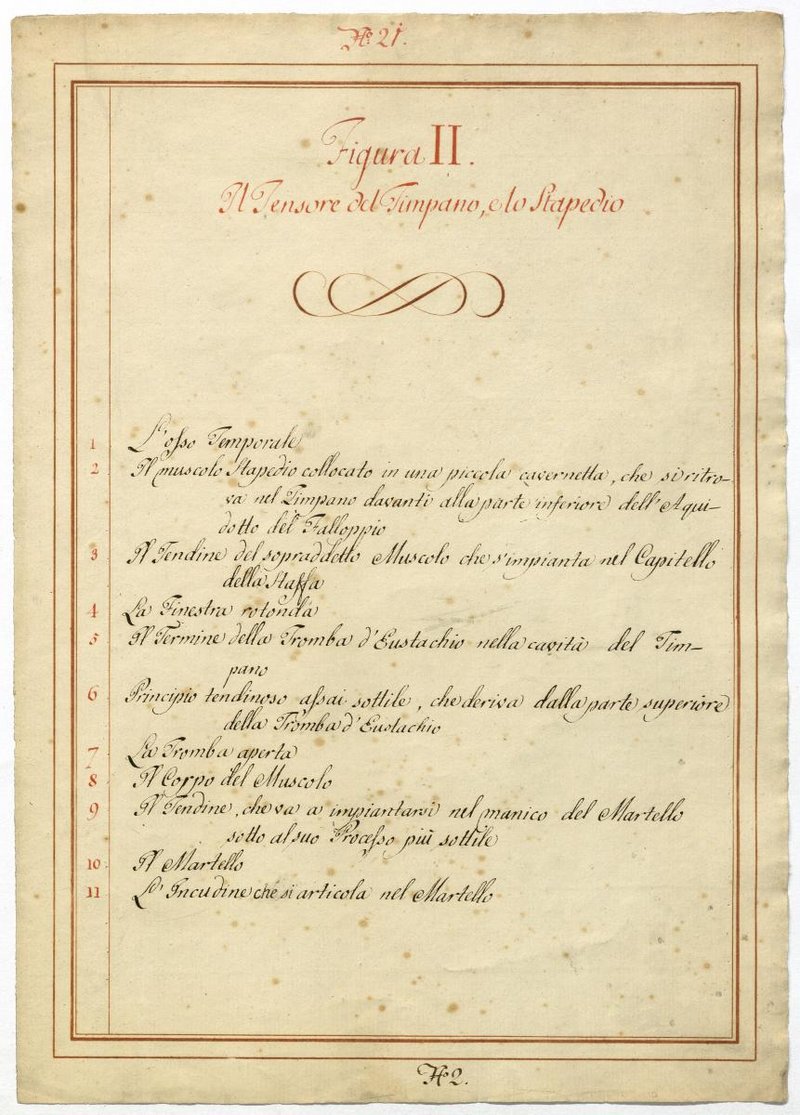 No. 21.
Figura II.
Il Tensore del Timpano, e lo Stapedio
1 L'osso Temporale
2 Il muscolo Stapedio collocato in una piccola cavernetta, che si ritro-
va nel Timpano davanti alla parte inferiore dell'Aqui-
dotto del Falloppio
3 Il Tendine del sopraddetto Muscolo che s'impianta nel Capitello
della Staffa
4 La Finestra rotonda
5 Il Termine della Tromba d'Eustachio nella cavità del Tim-
pano
6 Principio tendinoso assai sottile, che deriva dalla parte superiore
della Tromba d'Eustachio
7 La Tromba aperta
8 Il Corpo del Muscolo
9 Il Tendine, che va a impiantarsi nel manico del Martello
sotto al suo Processo più sottile
10 Il Martello
11 L'Incudine che si articola nel Martello
No 2.